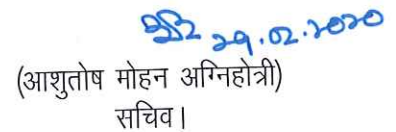 29.02.2020
(आशुतोष मोहन अग्निहोत्री)
सचिव।